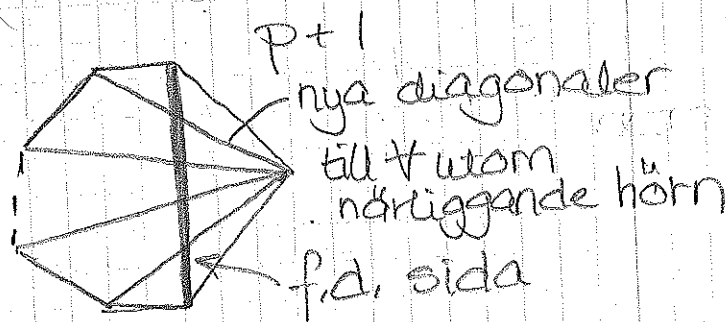 p + 1
nya diagonaler
till ∀ utom
närliggande hörn
f.d. sida